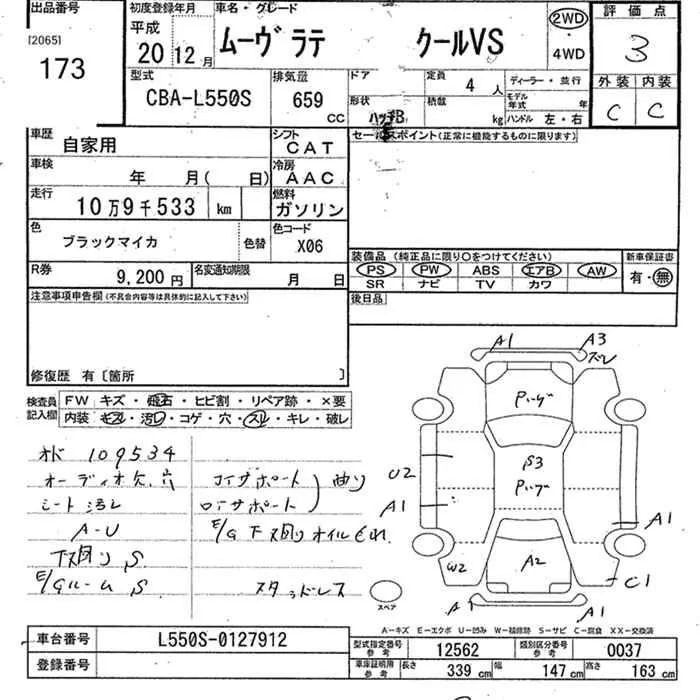 出品番号
[2065]
173
初度登録年月
平成
20 12 月
車名・グレード
ムーヴ ラテ クールVS
2WD
・
4WD
評価点
3
外装 内装
C C
型式
CBA-L550S
排気量
659
CC
ドア
形状
ハッチB
定員
4 人
積載
kg
ディーラー・並行
モデル
年式 年
ハンドル 左・右
車歴
自家用
シフト
CAT
車検
年 月( 日)
冷房
AAC
走行
10万9千533 km
燃料
ガソリン
色
ブラックマイカ
色替
色コード
X06
R券
9,200 円
名変通知期限
月 日
セールスポイント(正常に機能するものに限ります)
装備品 (純正品に限り○をつけてください)
PS PW ABS エアB AW
SR ナビ TV カワ
新車保証書
有・無
後日品
注意事項申告欄(不具合内容等は具体的に記入して下さい)
修復歴 有〔箇所 〕
検査員
記入欄
FW キズ・飛石・ヒビ割・リペア跡・×要
内装 キズ・汚レ・コゲ・穴・スレ・キレ・破レ
オド 109534
オーディオ欠.穴
シート汚レ
A-U
下廻り S
E/Gルーム S
コアサポート
ロアサポート
曲り
E/G 下廻りオイルもれ
スタッドレス
A1 A3
ズレ
Pハ゜ーヅ
S3
U2
A1
A1
W2
A2
C1
A1
A1
スペア
A-キズ E-エクボ U-凹み W-補修跡 S-サビ C-腐食 XX-交換済
車台番号
L550S-0127912
登録番号
型式指定番号
参考
12562
類別区分番号
参考
0037
車庫証明用
参考
長さ
339 cm
幅
147 cm
高さ
163 cm